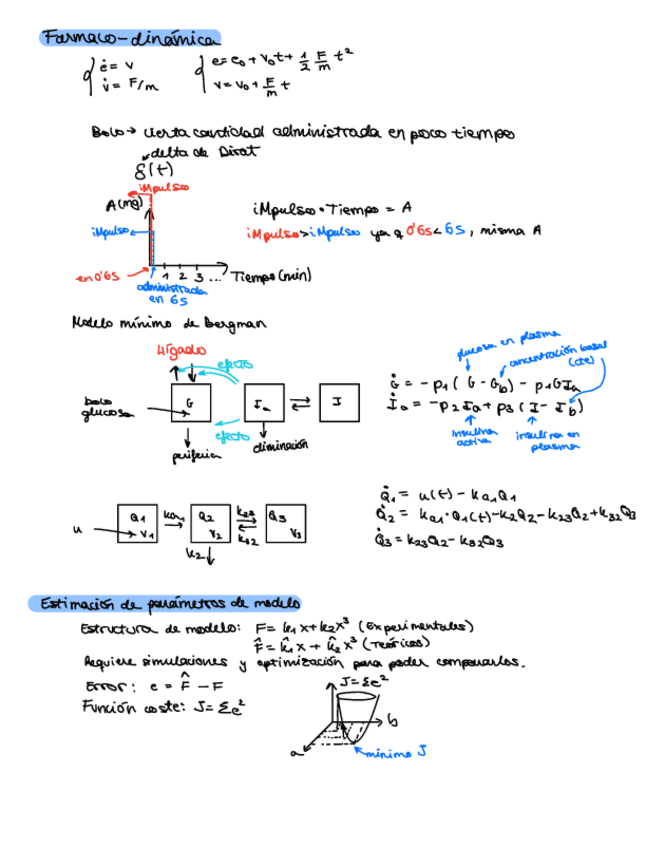 Farmaco-dinámica
ė = v    e = e0 + v0t + 1/2 F/m t²
v̇ = F/m    v = v0 + F/m t
Bolo → cierta cantidad administrada en poco tiempo
delta de Dirat
δ(t)
iMpulso
A(mg)
iMpulso
iMpulso • Tiempo = A
iMpulso > iMpulso ya q 0'6s < 6s, misma A
1 2 3 ... Tiempo (min)
en 0'6s
administrada
en 6s
Modelo mínimo de Bergman
Hígado
efecto
bolo
glucosa
G
Ia
I
efecto
periferia
eliminación
glucosa en plasma
concentración basal
(cte)
Ġ = -p1 (G - Gb) - p1GIa
İa = -p2Ia + p3 (I - Ib)
insulina
activa
insulina en
plasma
u
Q1
V1
ka1
Q2
V2
k23
k32
Q3
V3
k2
Q̇1 = u(t) - ka1Q1
Q̇2 = ka1·Q1(t) - k2Q2 - k23Q2 + k32Q3
Q̇3 = k23Q2 - k32Q3
Estimación de parámetros de modelo
Estructura de modelo: F = k1x + k2x³ (Experimentales)
F̂ = k̂1x + k̂2x³ (Teóricos)
Requiere simulaciones y optimización para poder compararlos.
Error: e = F̂ - F
Función coste: J = Σe²
J = Σe²
b
a
mínimo J